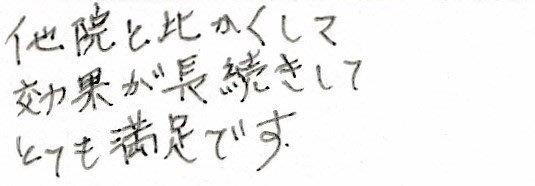 他院と比かくして
効果が長続きして
とても満足です.